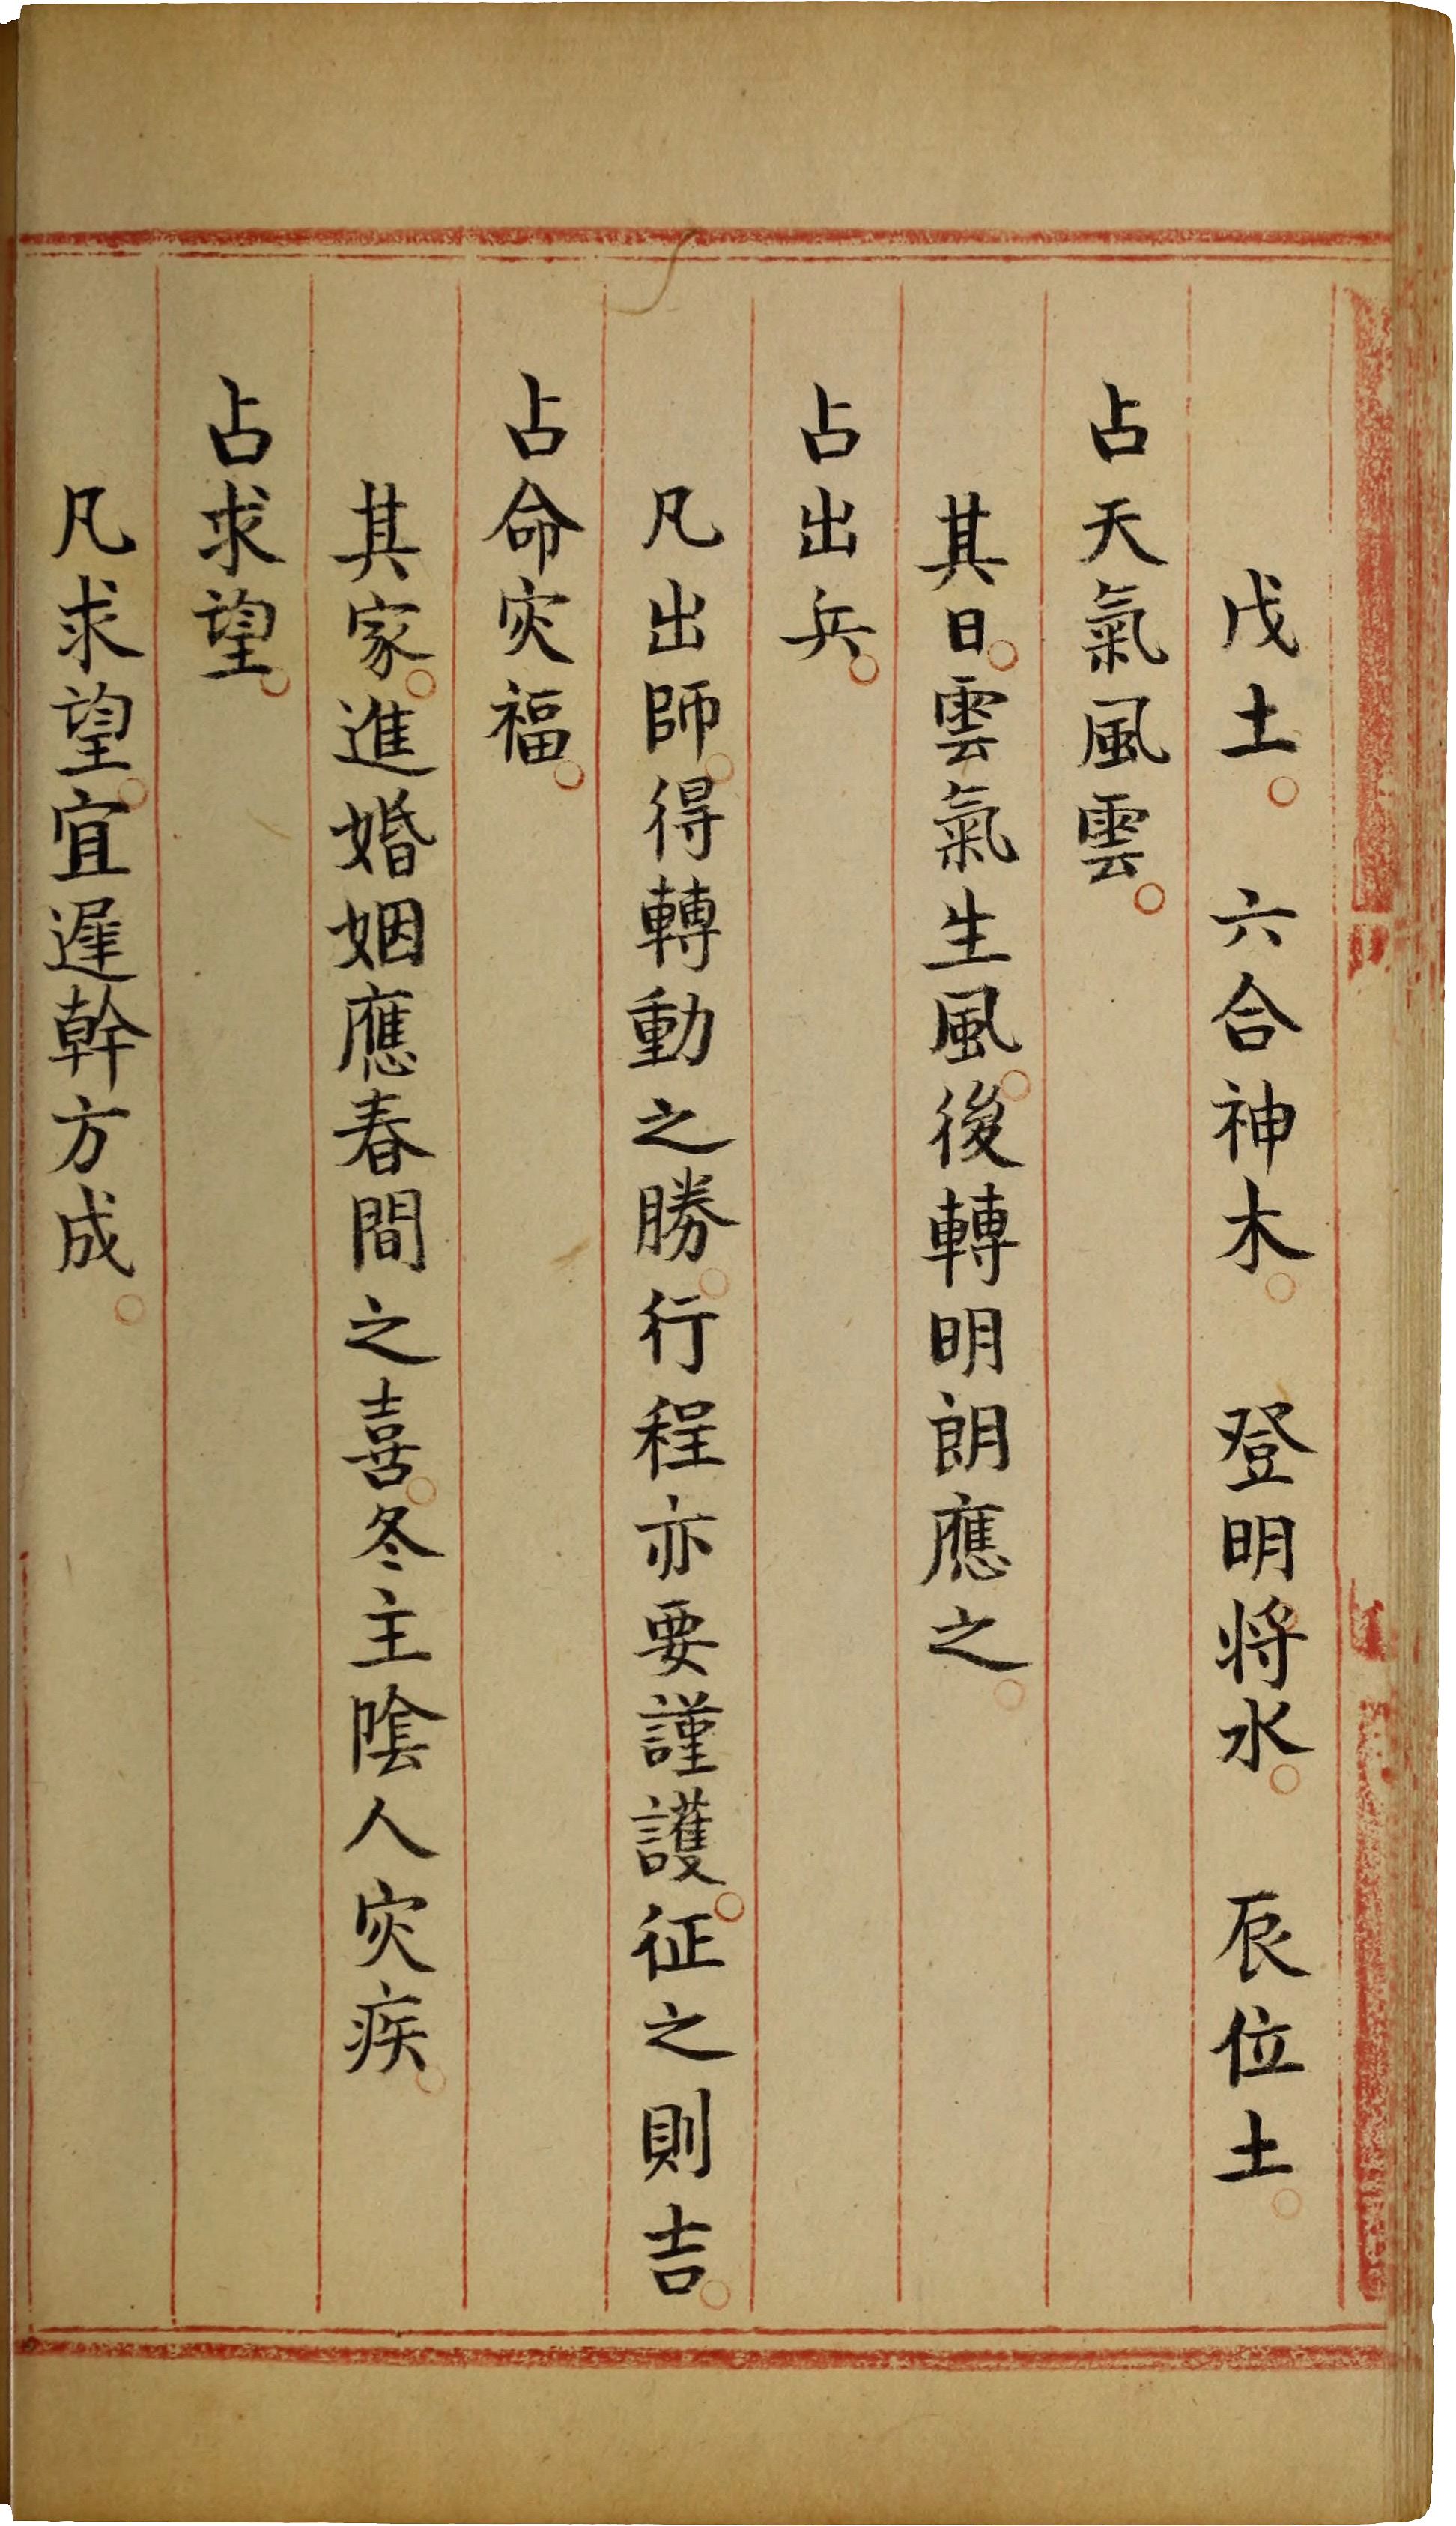 戊土。六合神木。登明将水。辰位土。
占天氣風雲。
其日。雲氣生風。後轉明朗應之。
占出兵。
凡出師。得轉動之勝。行程亦要謹護。征之則吉。
占命灾福。
其家。進婚姻應春間之喜。冬主陰人灾疾。
占求望。
凡求望。宜遲幹方成。